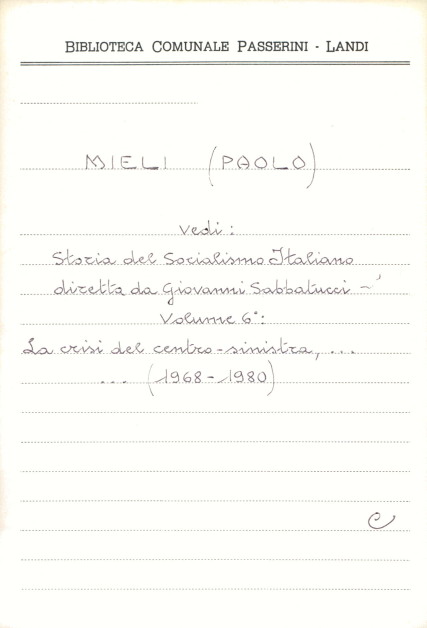 BIBLIOTECA COMUNALE PASSERINI - LANDI
MIELI (PAOLO)
Vedi:
Storia del Socialismo Italiano
diretta da Giovanni Sabbatucci –
Volume 6°:
La crisi del centro-sinistra, ...
... (1968-1980)
C